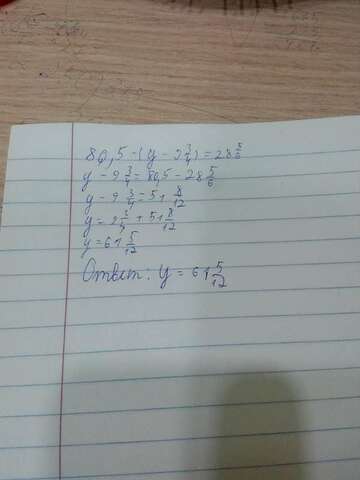 80,5-(y-9 3/4)=28 5/6
y-9 3/4=80,5-28 5/6
y-9 3/4=51 8/12
y=9 3/4+51 8/12
y=61 5/12
Ответ: y=61 5/12